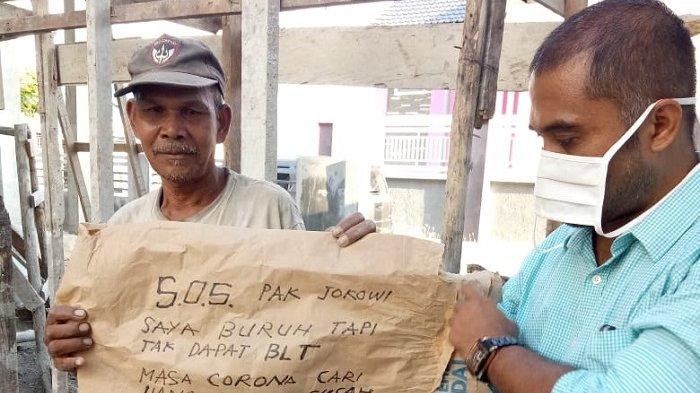 S.O.S. PAK JOKOWI
SAYA BURUH TAPI
TAK DAPAT BLT
MASA CORONA CARI